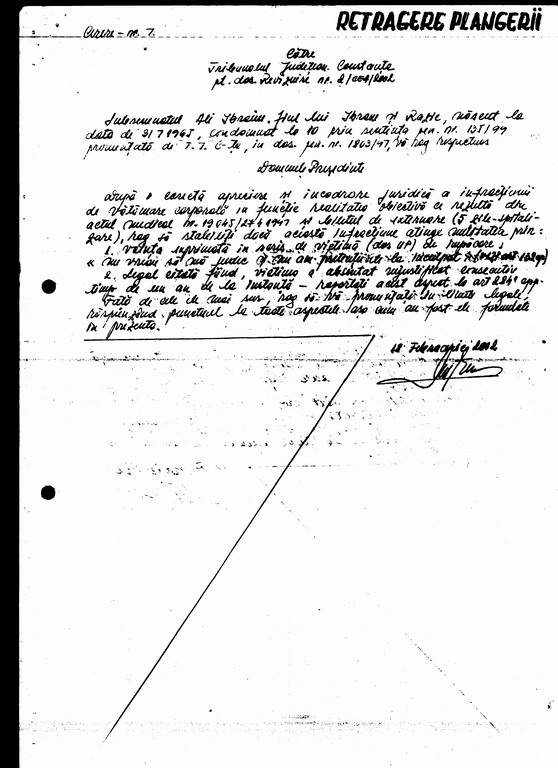 RETRAGERE PLANGERII
Cerere - nr. 7.
Către
Tribunalul Județean Constanța
pt. dos. Revizuire nr. 2/ /2002
Subsemnatul Ali Ibraim, fiul lui Ibram și , născut la
data de 31 7 1965, condamnat la 10 prin sentința pen. nr. 135/99
pronunțată de T. J. C-ța, în dos. pen. nr. 1803/97, vă rog respectuos
Domnule Președinte
După o corectă apreciere și încadrare juridică a infracțiunii
de vătămare corporală în funcție realitatea obiectivă ce rezultă din
actul medical nr. și biletul de externare (5 zile-spitali-
zare), rog să stabiliți dacă această infracțiune atinge nulitatea prin:
1. voința exprimată în scris de victimă (dos UP) de împăcare,
« nu vreau să mă judec și nu am pretenții de la inculpat »
2. legal citată fiind, victima a absentat nejustificat consecutiv
timp de un an de la instanță – raportați acest aspect la art 284 cpp
Față de cele de mai sus, rog să vă pronunțați în limite legale,
răspunzând punctual la toate aspectele așa cum au fost ele formulate
în prezenta.
2002